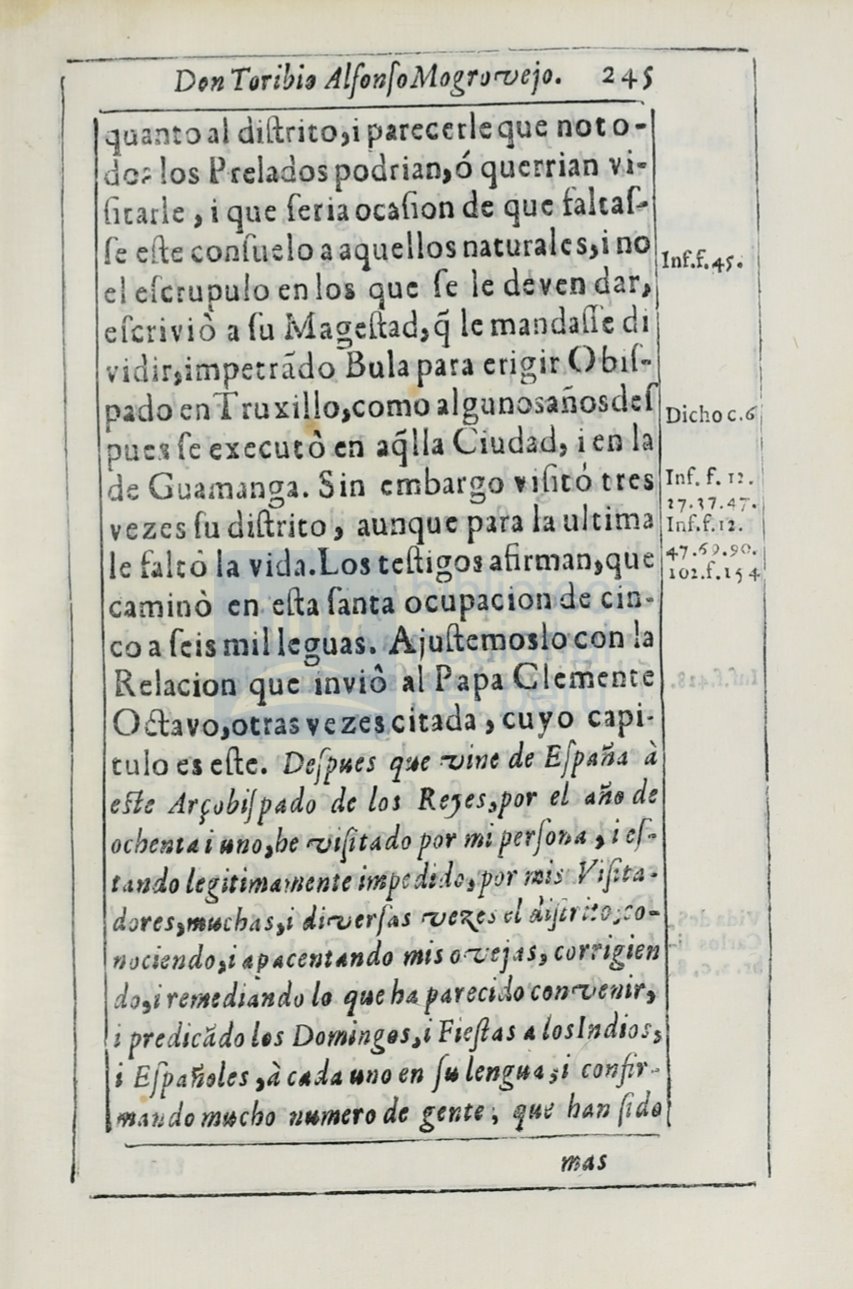 Don Toribio Alfonſo Mogrovejo. 245
quanto al diſtrito, i parecerle que no to-
dos los Prelados podrian, ó querrian vi-
ſitarle, i que ſeria ocaſion de que faltaſ-
ſe eſte conſuelo a aquellos naturales, i no
el eſcrupulo en los que ſe le deven dar,
eſcriviò a ſu Mageſtad, q̃ le mandaſſe di
vidir, impetrãdo Bula para erigir Obiſ-
pado en Truxillo, como algunos años deſ
pues ſe executò en aq̃lla Ciudad, i en la
de Guamanga. Sin embargo viſitó tres
vezes ſu diſtrito, aunque para la ultima
le faltò la vida. Los teſtigos afirman, que
caminò en eſta ſanta ocupacion de cin-
co a ſeis mil leguas. Ajuſtemoslo con la
Relacion que invió al Papa Clemente
Octavo, otras vezes citada, cuyo capi-
tulo es eſte. Deſpues que vine de Eſpaña à
eſte Arçobiſpado de los Reyes, por el año de
ochenta i uno, he viſitado por mi perſona, i eſ-
tando legitimamente impedido, por mis Viſita-
dores, muchas, i diverſas vezes el diſtrito, co-
nociendo, i apacentando mis ovejas, corrigien
do, i remediando lo que ha parecido convenir,
i predicãdo los Domingos, i Fieſtas a los Indios,
i Eſpañoles, à cada uno en ſu lengua, i confir-
mando mucho numero de gente, que han ſido
mas
Inf.f.45.
Dicho c.6
Inf. f. 12.
27.37.47.
Inf.f.12.
47.69.90.
102.f.154